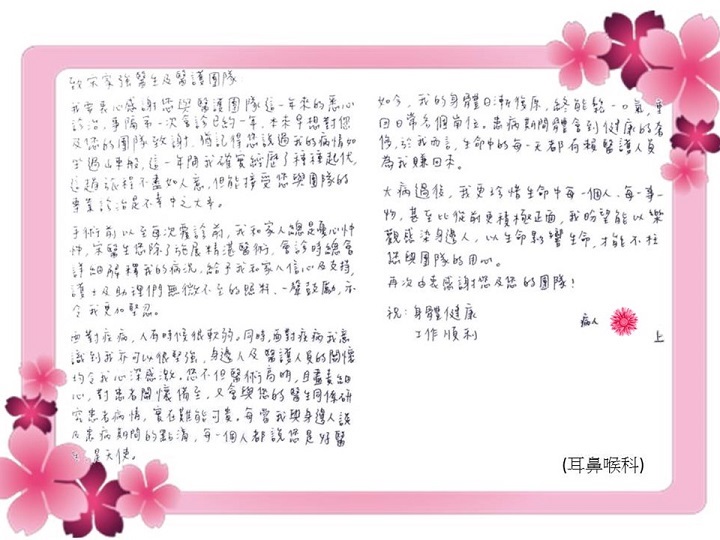 致宋家強醫生及醫護團隊
我要衷心感謝您與醫護團隊這一年來的悉心
診治，事隔第一次會診已約一年，本來早想對您
及您的團隊致謝。猶記得您說過我的病情如
坐過山車般，這一年間我確實經歷了種種起伏，
這趟旅程不盡如人意，但能接受您與團隊的
專業診治是不幸中之大幸。
手術前以至每次覆診前，我和家人總是憂心忡
忡，宋醫生您除了施展精湛醫術，會診時總會
詳細解釋我的病況，給予我和家人信心及支持，
護士及助理們無微不至的照料、一聲鼓勵，亦
令我更加堅忍。
面對疾病，人有時候很軟弱。同時，面對疾病我意
識到我亦可以很堅強，身邊人及醫護人員的關懷
均令我心深感激。您不但醫術高明，且盡責細
心，對患者關懷備至，又會與您的醫生同僚研
究患者病情，實在難能可貴。每當我與身邊人談
及患病期間的點滴，每一個人都說您是好醫
生、是天使。
如今，我的身體日漸復原，終能鬆一口氣，重
回日常各個崗位。患病期間體會到健康的奢
侈，於我而言，生命中的每一天都有賴醫護人員
為我賺回來。
大病過後，我更珍惜生命中每一個人、每一事一
物，甚至比從前更積極正面，我盼望能以樂
觀感染身邊人，以生命影響生命，才能不枉
您與團隊的用心。
再次由衷感謝您及您的團隊！
祝：身體健康
工作順利
病人
上
(耳鼻喉科)